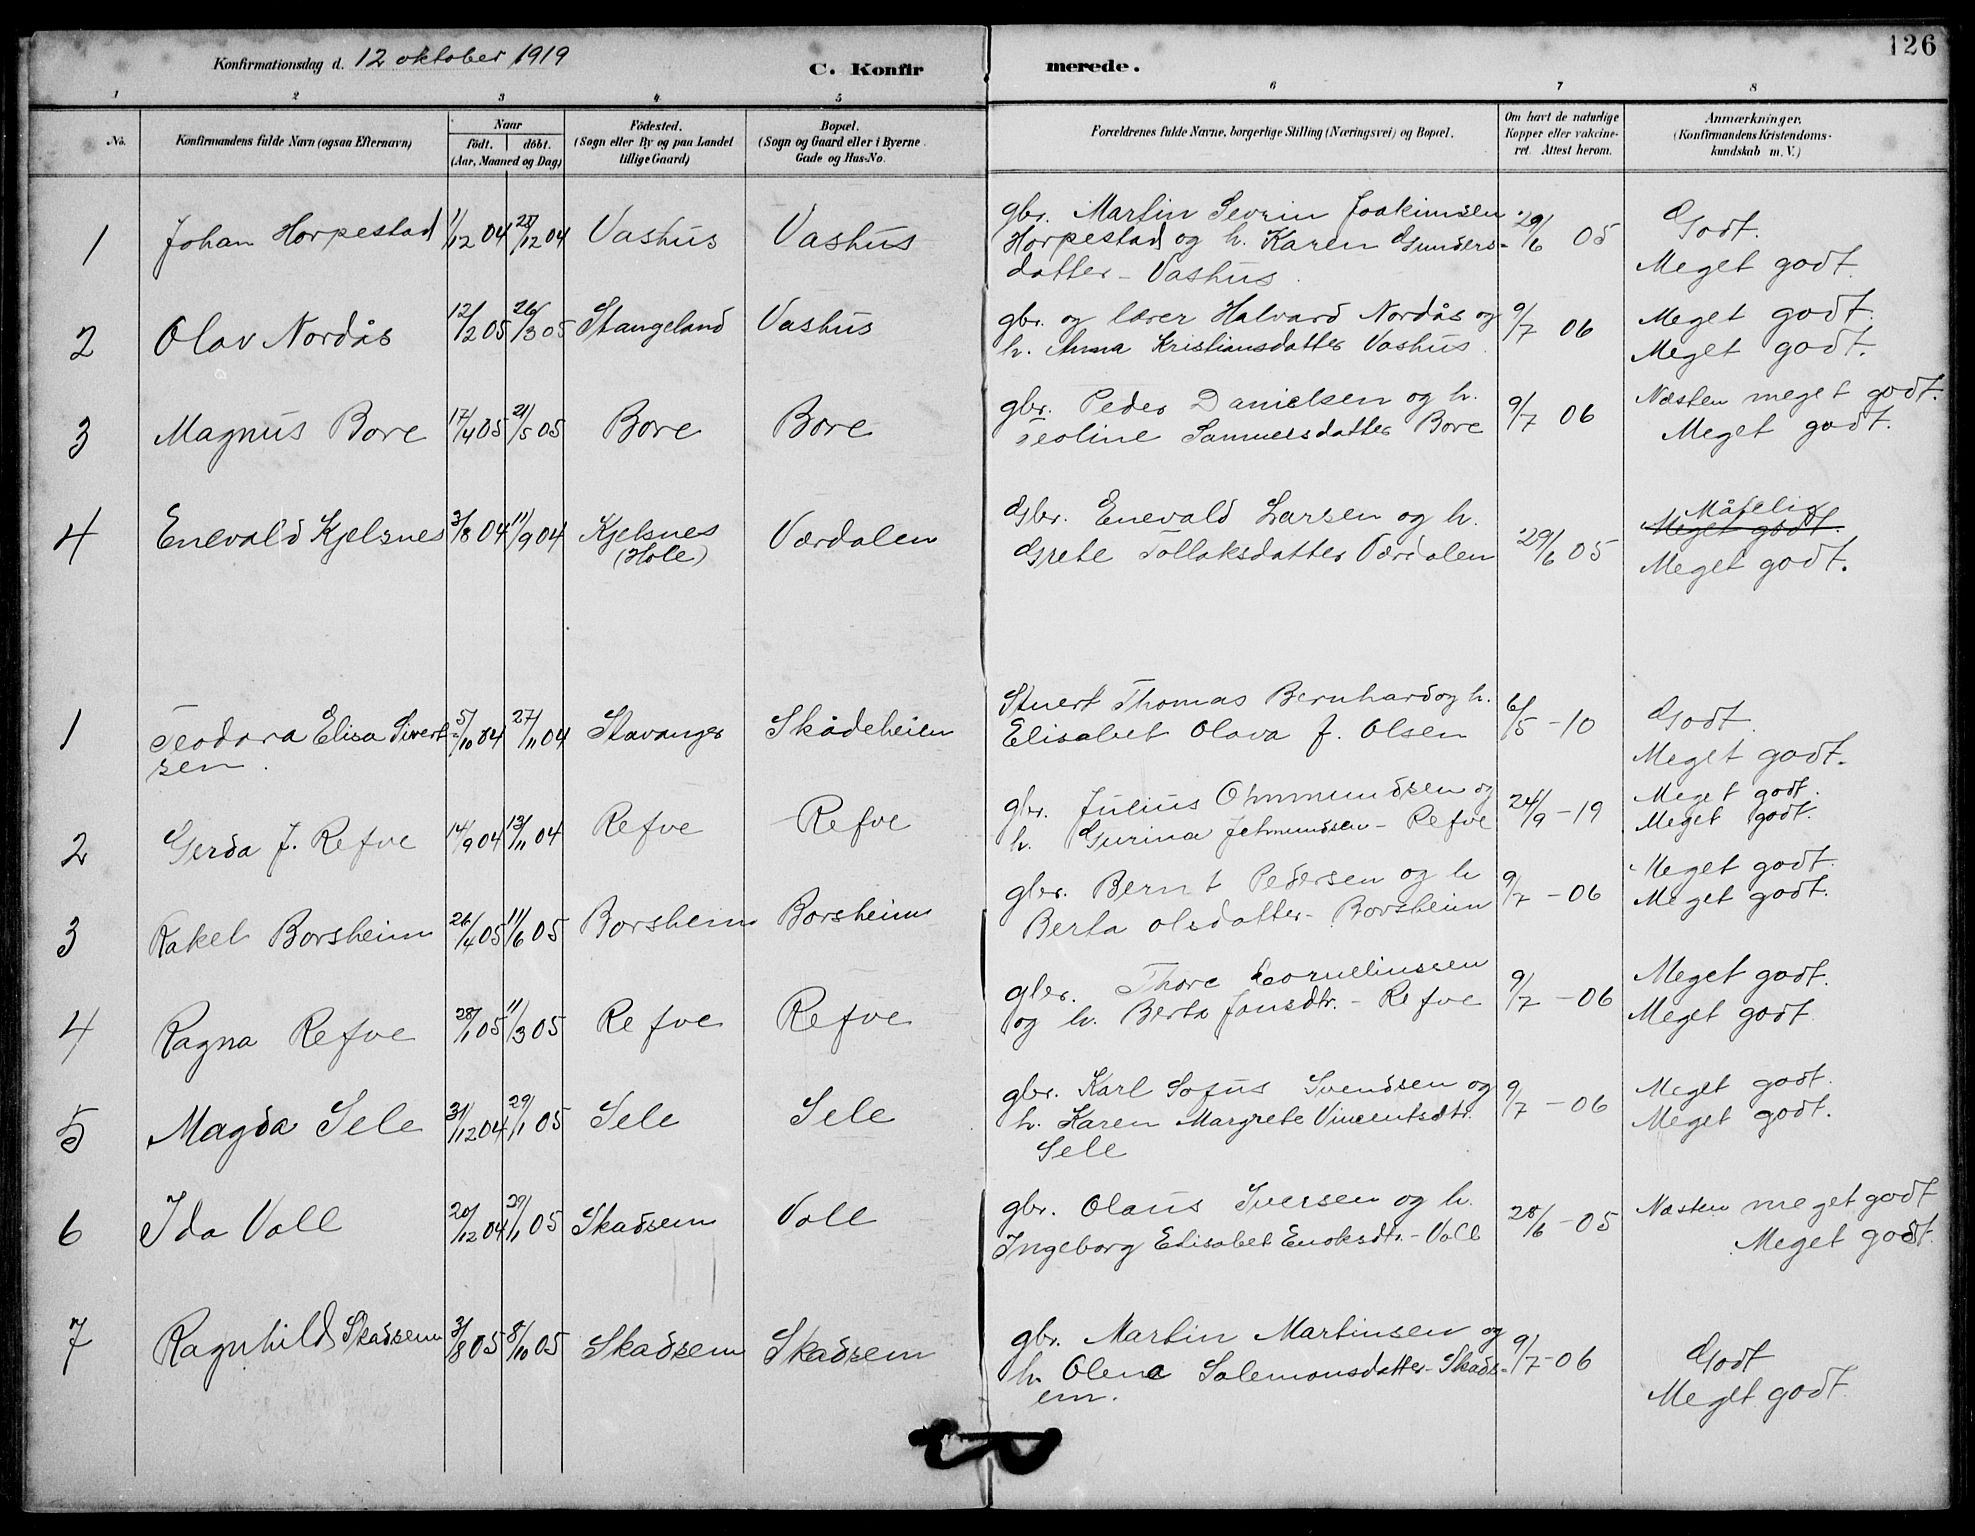 126
Konfirmationsdag d. 12 oktober 1919
C. Konfir merede.
1 2 3 4 5 6 7 8
No. Konfirmandens fulde Navn (ogsaa Efternavn) Naar født. døbt. (Aar, Maaned og Dag) Fødested. (Sogn eller By og paa Landet tillige Gaard) Bopæl. (Sogn og Gaard eller i Byerne Gade og Hus-No. Forældrenes fulde Navne, borgerlige Stilling (Næringsvei) og Bopæl. Om havt de naturlige Kopper eller vakcineret. Attest herom. Anmærkninger. (Konfirmandens Kristendomskundskab m. V.)
1 Johan Horpestad 1/12 04 28/12 04 Vashus Vashus gbr. Martin Sevrin Joakimsen Horpestad og h. Karen Gunders-datter - Vashus. 29/6 05 Godt. Meget godt.
2 Olav Nordås 12/2 05 26/3 05 Stangeland Vashus gbr. og lærer Halvard Nordås og h. Anna Kristiansdatter Vashus. 9/7 06 Meget godt. Meget godt.
3 Magnus Bore 17/4 05 21/5 05 Bore Bore gbr. Peder Danielsen og h. Teoline Samuelsdatter Bore 9/7 06 Næsten meget godt. Meget godt.
4 Enevald Kjelsnes 3/8 04 11/9 04 Kjelsnes (Hole) Værdalen Gbr. Enevald Larsen og h. Grete Tollaksdatter Værdalen 29/6 05 Måtelig Meget godt. Meget godt.
1 Teodora Elisa Sivert-sen. 5/10 04 27/11 04 Stavanger Skådeheien Stuert Thomas Bernhard og h. Elisabet Olava f. Olsen 6/5 - 10 Godt. Meget godt.
2 Gerda J. Refve 14/9 04 13/11 04 Refve Refve gbr. Julius Ommundsen og h. Gurina Jetmundsen - Refve 24/9 - 19 Meget godt. Meget godt.
3 Rakel Borsheim 26/4 05 11/6 05 Borsheim Borsheim gbr. Bernt Pedersen og h Berta Olsdatter - Borsheim 9/7 - 06 Meget godt. Meget godt.
4 Ragna Refve 28/1 05 11/3 05 Refve Refve gbr. Thore Corneliussen og h. Berta Jonsdtr. - Refve 9/7 - 06 Meget godt. Meget godt
5 Magda Sele 31/12 04 29/1 05 Sele Sele gbr. Karl Sofus Svendsen og h. Karen Margrete Vincentsdtr. Sele 9/7 - 06 Meget godt. Meget godt.
6 Ida Voll 20/12 04 29/1 05 Skadsem Voll gbr. Olaus Iversen og h. Ingeborg Elisabet Enoksdtr. - Voll 28/6 - 05 Næsten meget godt Meget godt.
7 Ragnhild Skadsem 3/8 05 8/10 05 Skadsem Skadsem gbr. Martin Martinsen og h. Olene Salemonsdatter - Skads-em. 9/7 - 06 Godt Meget godt.